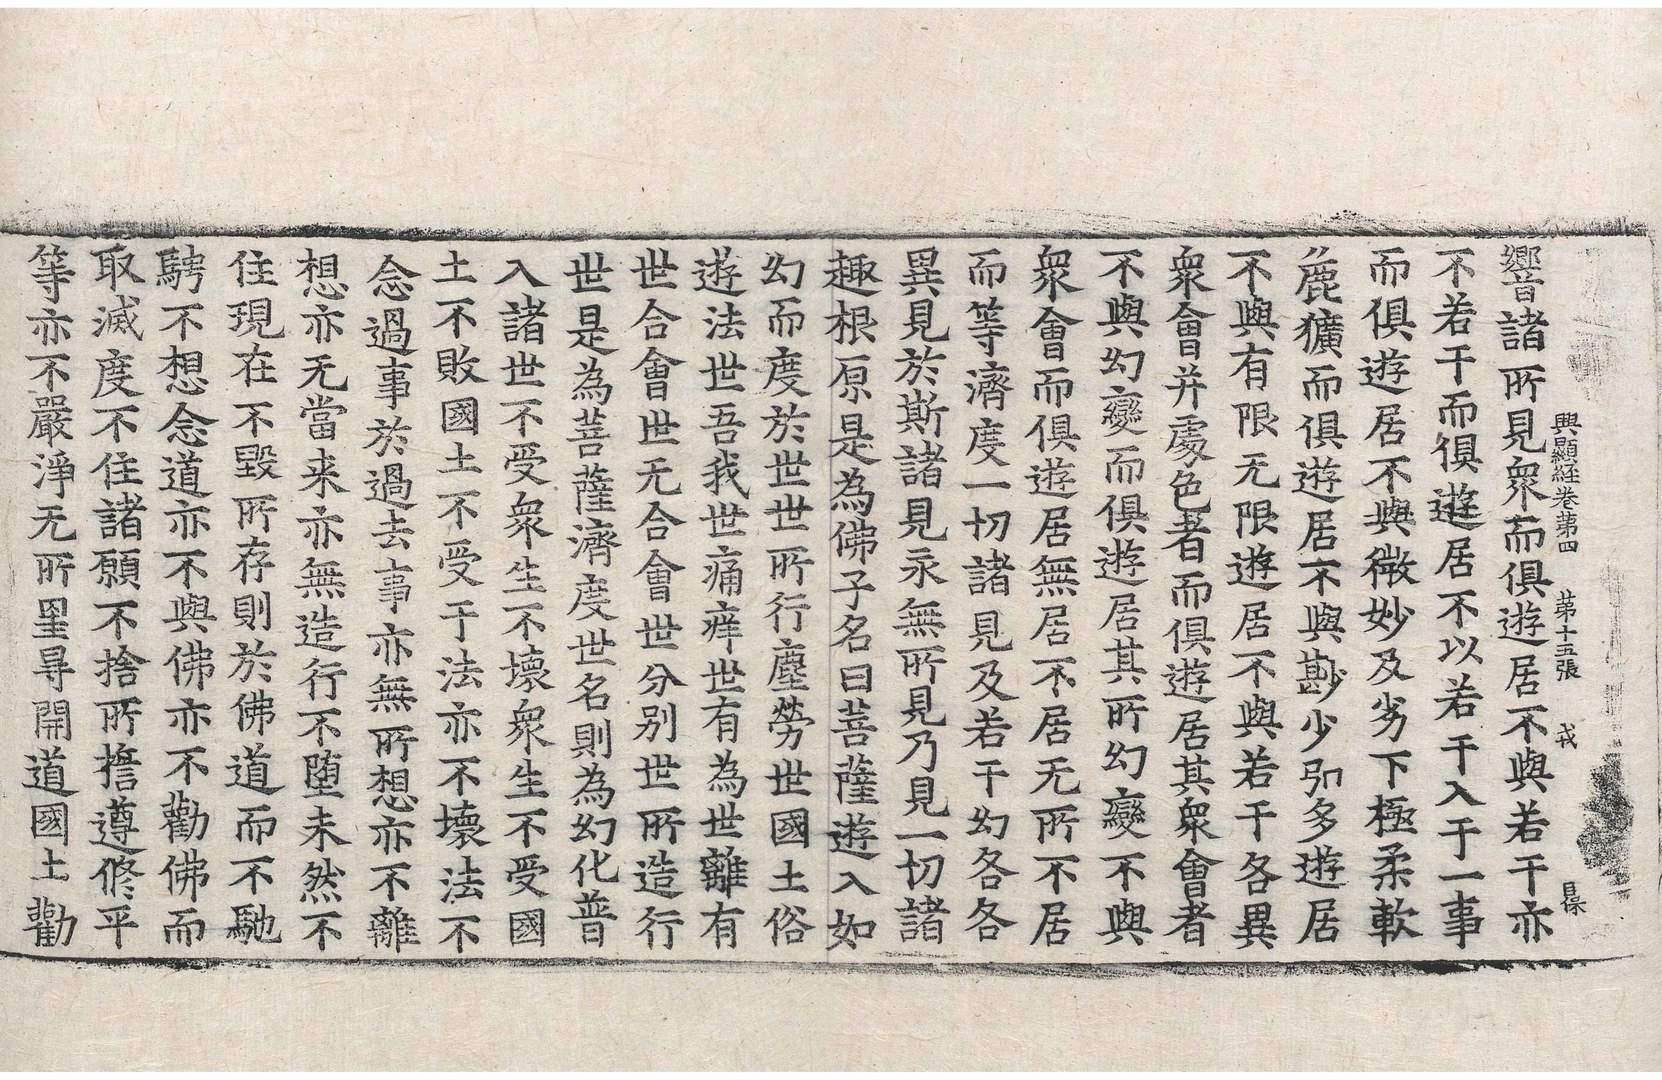 興顯経卷第四 第十五張 戎
響音諸所見衆而俱遊居不與若干亦
不若干而俱遊居不以若干入于一事
而俱遊居不與微妙及劣下極柔軟
麁獷而俱遊居不與尠少弘多遊居
不與有限无限遊居不與若干各異
衆會并處色者而俱遊居其衆會者
不與幻變而俱遊居其所幻變不與
衆會而俱遊居無居不居无所不居
而等濟度一切諸見及若干幻各各
異見於斯諸見永無所見乃見一切諸
趣根原是為佛子名曰菩薩遊入如
幻而度於世世所行塵勞世國土俗
遊法世吾我世痛痒世有為世離有
世合會世无合會世分别世所造行
世是為菩薩濟度世名則為幻化普
入諸世不受衆生不壞衆生不受國
土不敗國土不受于法亦不壞法不
念過事於過去事亦無所想亦不離
想亦无當来亦無造行不墮未然不
住現在不毀所存則於佛道而不馳
騁不想念道亦不與佛亦不勸佛而
取滅度不住諸願不捨所擔遵修平
等亦不嚴淨无所罣㝵開道國土勸